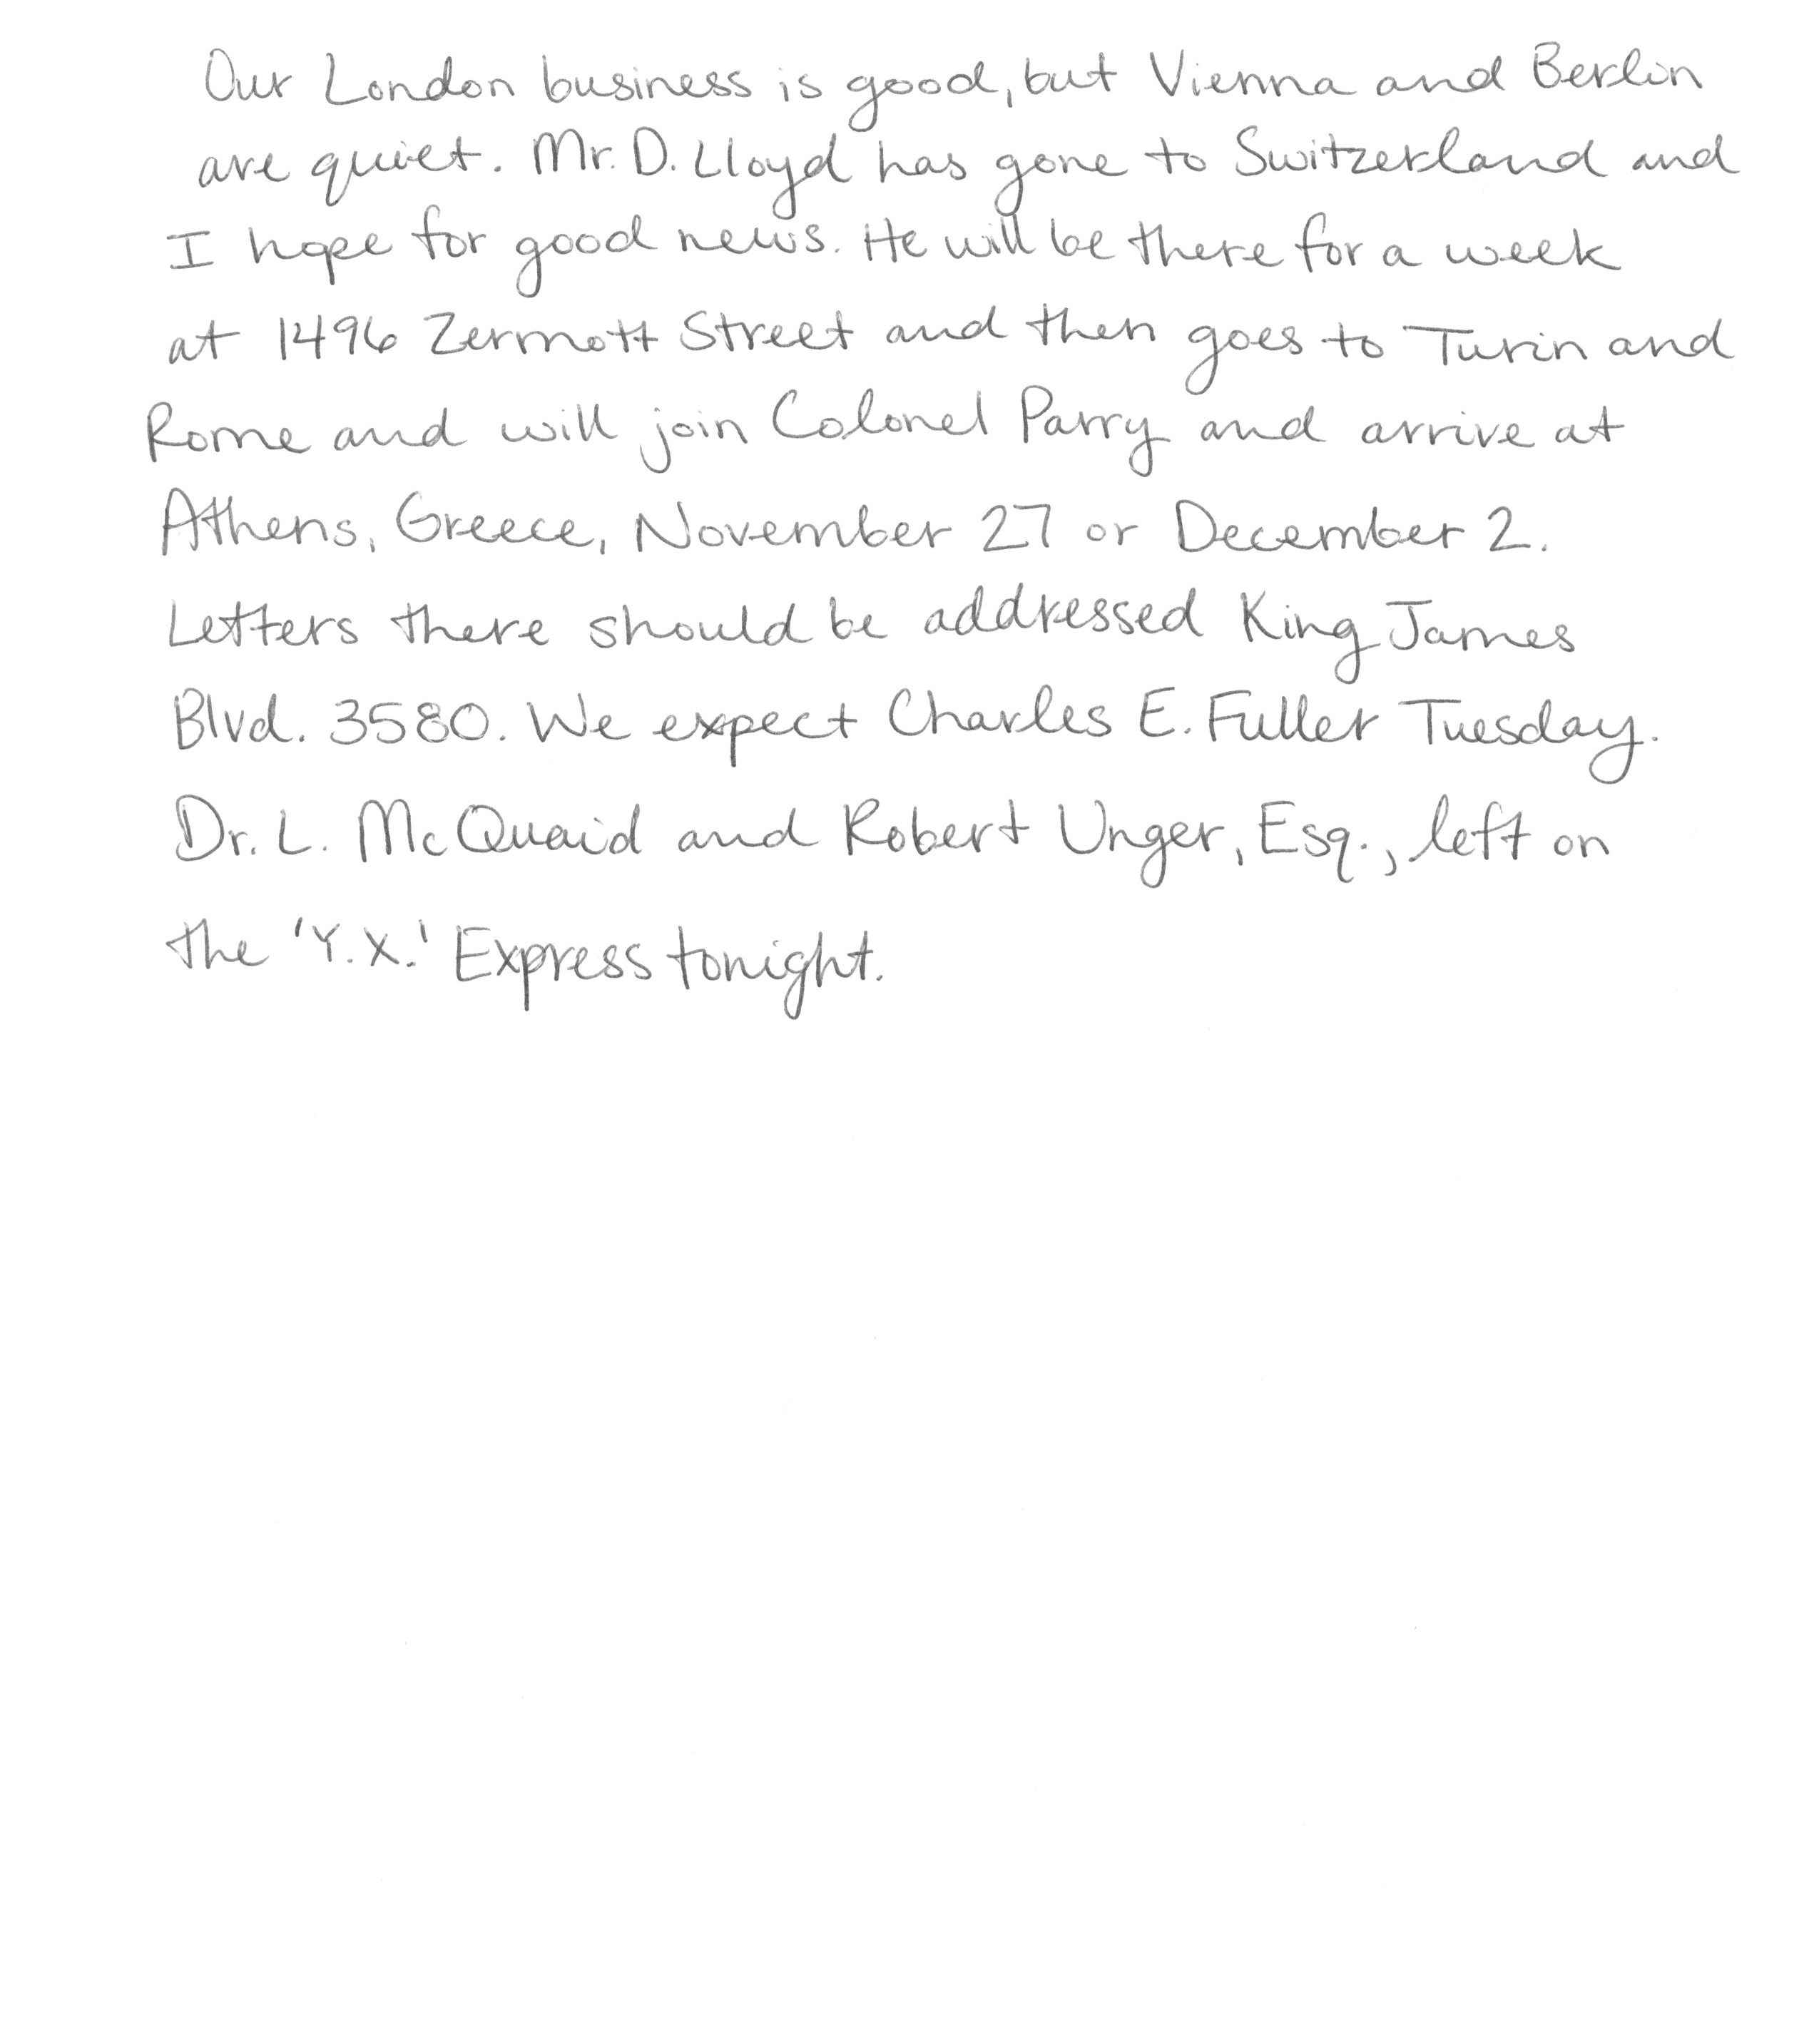 Our London business is good, but Vienna and Berlin
are quiet. Mr. D. Lloyd has gone to Switzerland and
I hope for good news. He will be there for a week
at 1496 Zermott Street and then goes to Turin and
Rome and will join Colonel Parry and arrive at
Athens, Greece, November 27 or December 2.
Letters there should be addressed King James
Blvd. 3580. We expect Charles E. Fuller Tuesday.
Dr. L. McQuaid and Robert Unger, Esq., left on
the 'Y.X.' Express tonight.